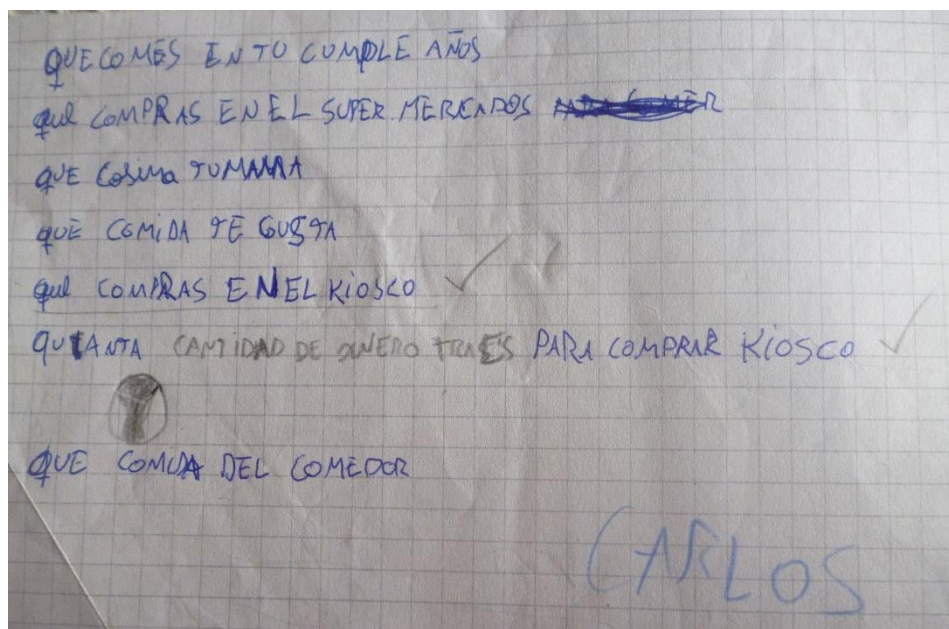 QUE COMES EN TU CUMPLE AÑOS
QUE COMPRAS EN EL SUPER MERCADOS
QUE COSINA TU MAMA
QUE COMIDA TE GUSTA
QUE COMPRAS EN EL KIOSCO
QUTANTA CANTIDAD DE DINERO TRAES PARA COMPRAR KIOSCO
QUE COMIDA DEL COMEDOR
CARLOS